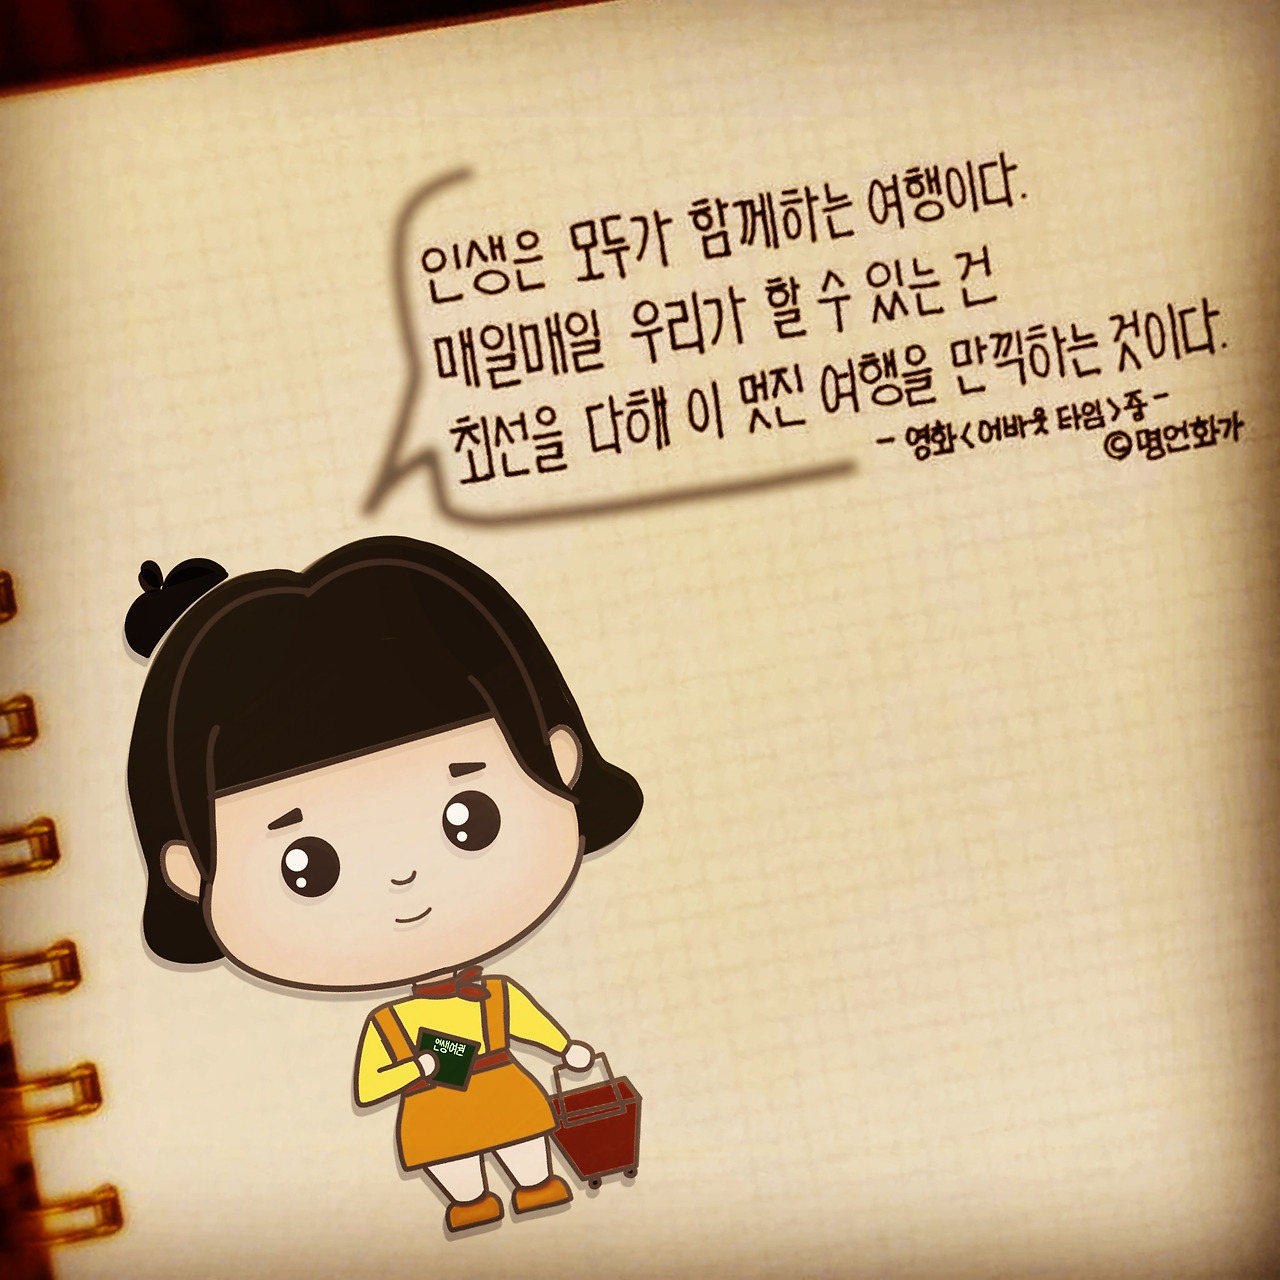 인생은 모두가 함께하는 여행이다.
매일매일 우리가 할 수 있는 건
최선을 다해 이 멋진 여행을 만끽하는 것이다.
- 영화<어바웃 타임>중 -
©명언화가
인생여권